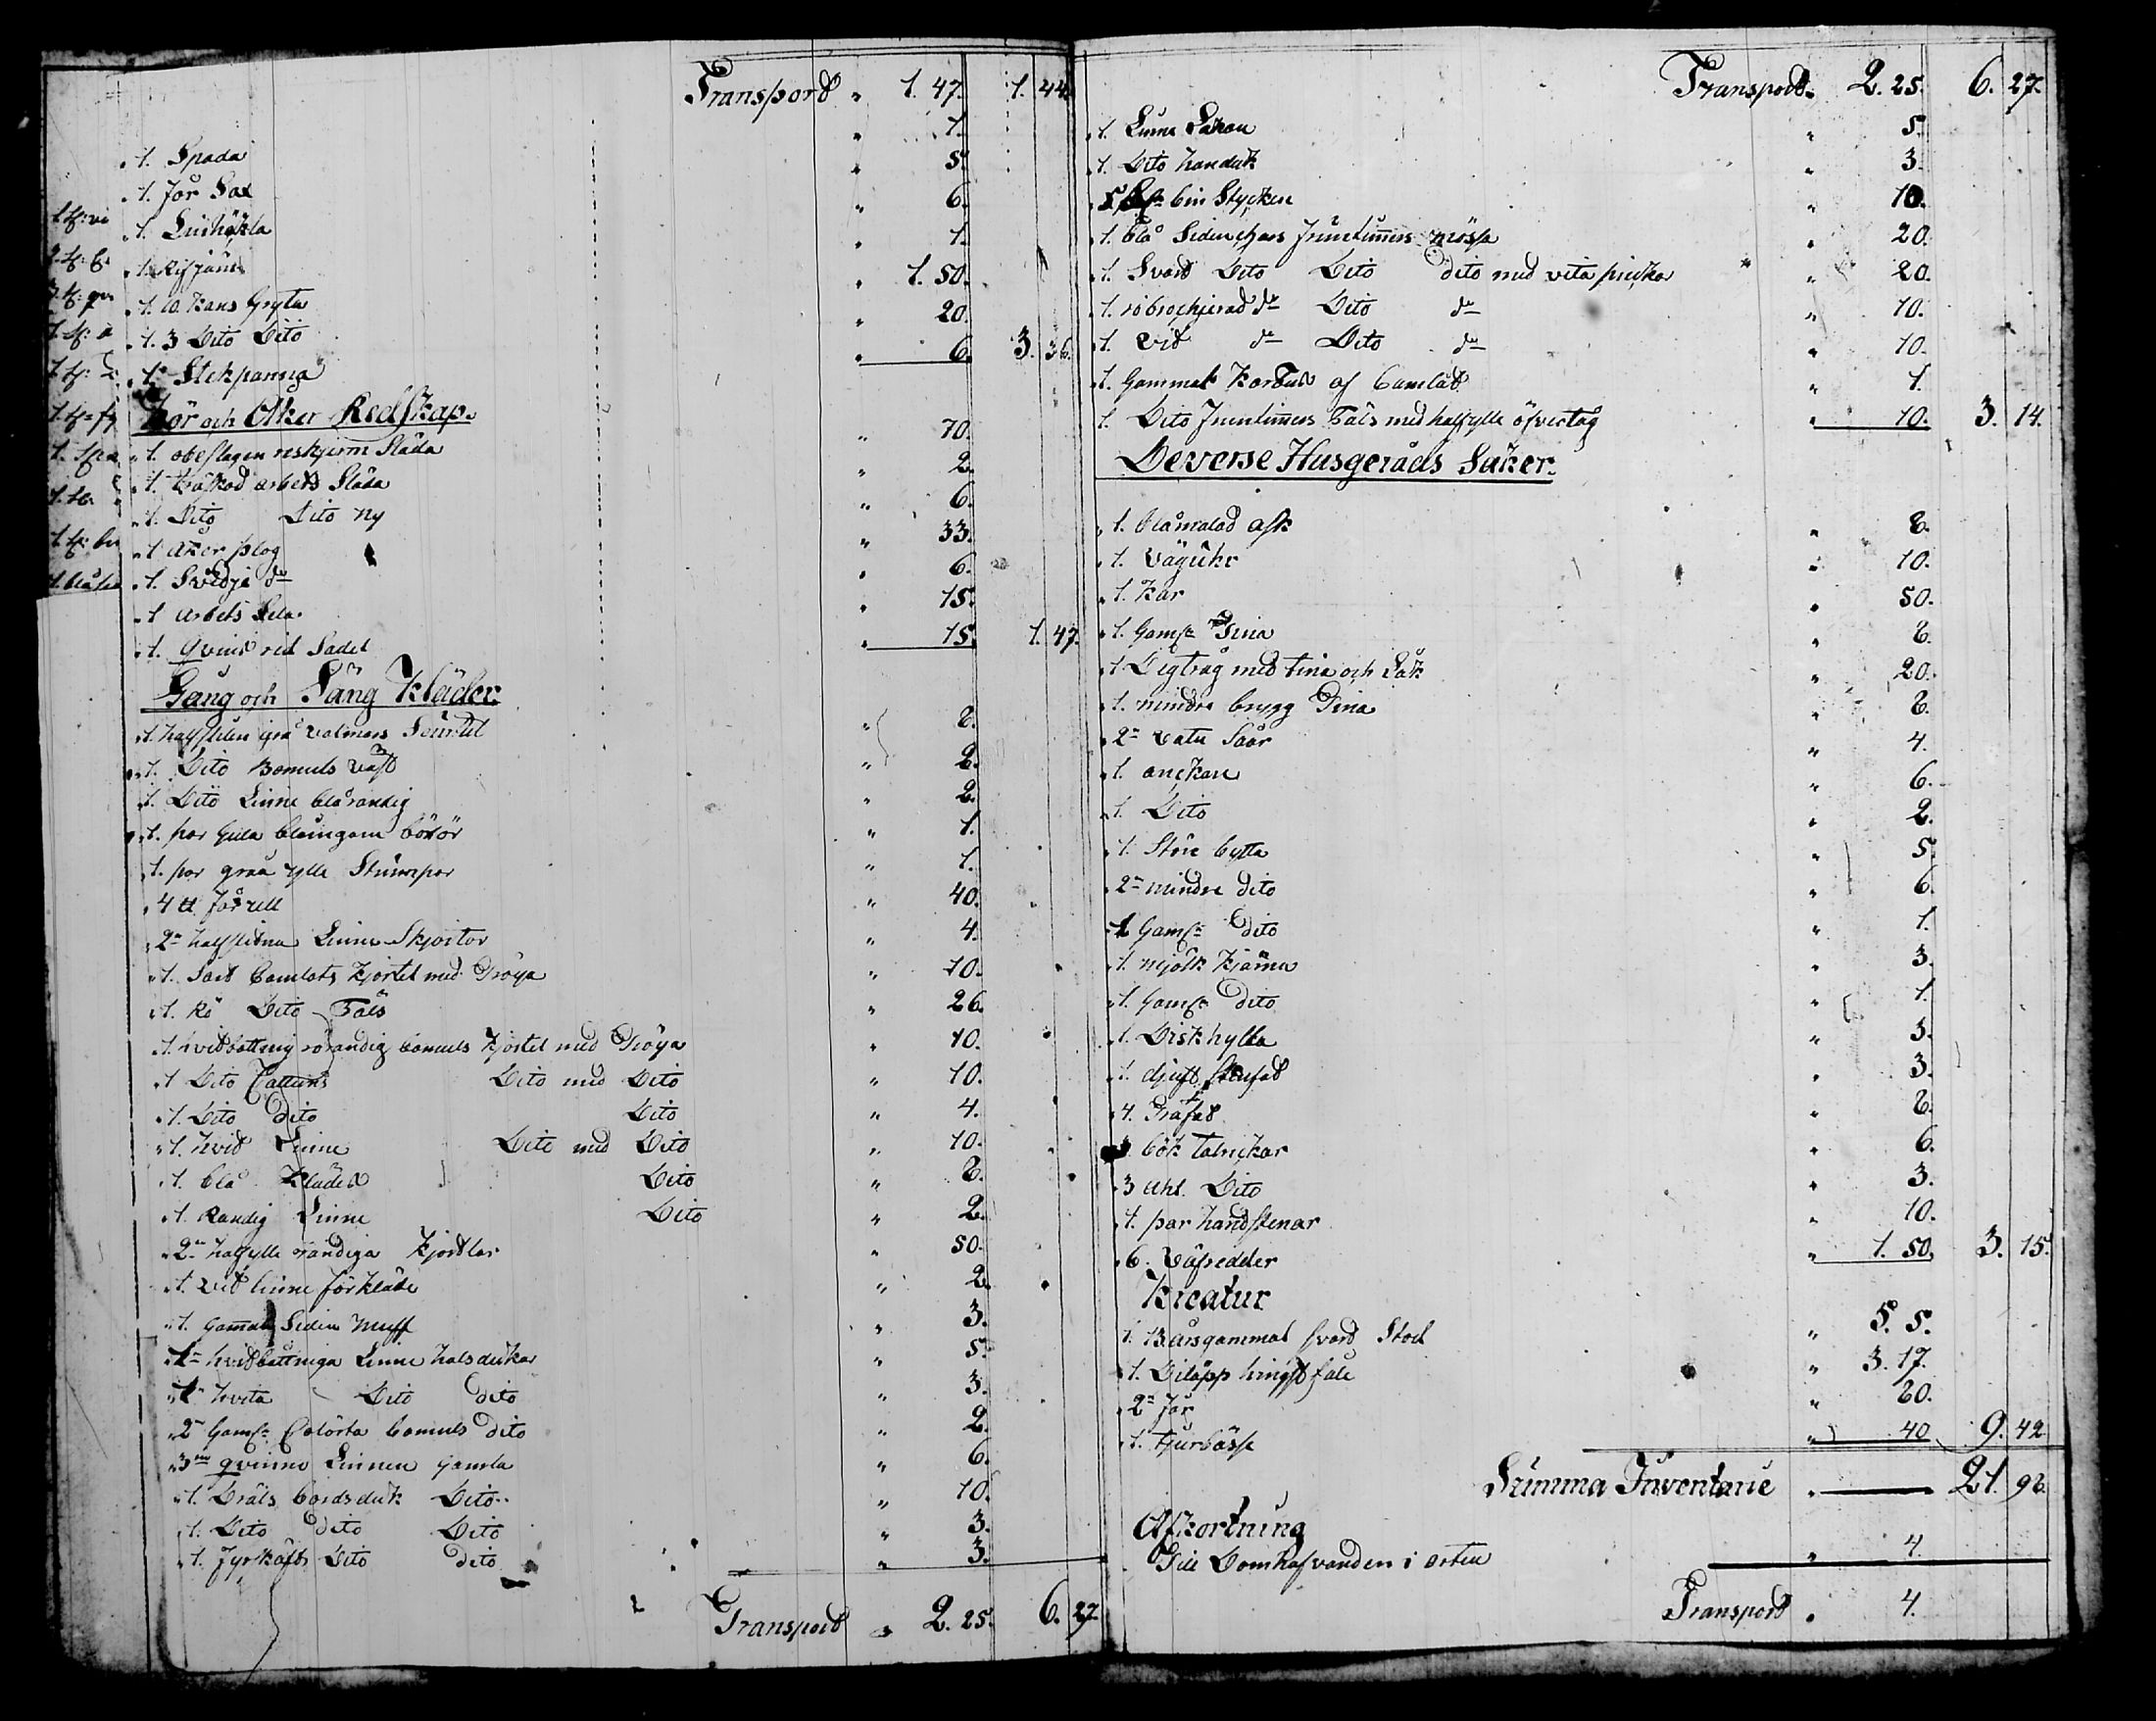 Transport " 1. 47. 1. 44.
1. Spada " 1.
1. får Sax " 5.
1. Linhäkla " 6.
1. Rifjärn " 1.
1. 10. Kans Gryta " 1. 50.
1. 3 Dito Dito " 20.
1. Stekpanna " 6. 3. 36.
Kör och Åker Redskap.
1. obeslagen reskjerra Släda " 70.
1. arbets Släda " 2.
1. Dito Dito ny " 6.
1 åker plog " 33.
1. Svedje do " 6.
1 arbets Sela " 15.
1. qvinds rid Sadel " 15. 1. 47.
Gång och Säng Kläder.
1. halfsliten grå valmars " 8.
1. Dito Bomuls väst " 2.
1. Dito Linne blårandig " 2.
1. par gula blaingarn böxor " 1.
1. par gråa ylle Strumpor " 1.
4 ℔ fårull " 40.
2ne halfslitna Linne Skjortor " 4.
1. Camlots Kjortel med Tröya " 10.
1. Rö Dito Päls " 26.
1. hvidbottnig rörandig bomuls Kjortel med Tröya " 10.
1 Dito Cattuns Dito med Dito " 10.
1. Dito dito Dito " 4.
1. hvid Linne Dito med Dito " 10.
1. blå Kläded Dito " 8.
1. Randig Linne Dito " 2.
2ne halfylle randiga Kjortlar " 50.
1. vid linne förkläde " 2.
1. gamal Siden Muff " 3.
hvidbottniga Linne halsdukar " 5.
hvita Dito dito " 3.
2ne Gaml: Colörta bomuls dito " 2.
3ne qvinno Linnen gamla " 6.
1. Dräls bordsduk Dito " 10.
1. Dito dito Dito " 3.
1. fyrskäfts Dito dito " 3.
Transport " 2. 25. 6. 27.
Transport " 2. 25. 6. 27.
1. Linne Lakan " 5.
1. Dito handuk " 3.
5 St: bin Stycken " 10.
1. blå Siden fruntimers mössa " 20.
1. Svart Dito Dito dito med vita prickar " 20.
1. do Dito do " 10.
1. Vid do Dito do " 10.
1. Gammal af Camlåt " 1.
1. Dito fruntimers Päls med halfylle öfvertåg " 10. 3. 14.
Deverse Husgeråds Saker.
1. blåmalad ask " 8.
1. Vägguhr " 10.
1. Kar " 50.
1. Gaml: Tina " 8.
1. Degtråg med tina och Låk " 20.
1. mindre brygg Tina " 8.
2ne Vatu Såar " 4.
1. anckare " 6.
1. Dito " 2.
1. Störe bytta " 5.
2ne mindre dito " 6.
1 Gaml: dito " 1.
1. mjölk Kjärna " 3.
1. Gaml: dito " 1.
1. Diskhylla " 3.
1. djupt Stenfat " 3.
4. Träfat " 8.
3 bök Talrickar " 6.
3 ahl. Dito " 3.
1. par handstenar " 10.
6. Väfredder " 1. 50. 3. 15.
Kreatur
1. 13 årsgammal svart Stod " 5. 5.
1. Dilåpp hingst fåle " 3. 17.
2ne får " 80.
1. tjurbåsse " 40 9. 42
Summa Inventarie " 21. 98.
Afkortning
Till Domhafvanden i orten " 4.
Transport " 4.